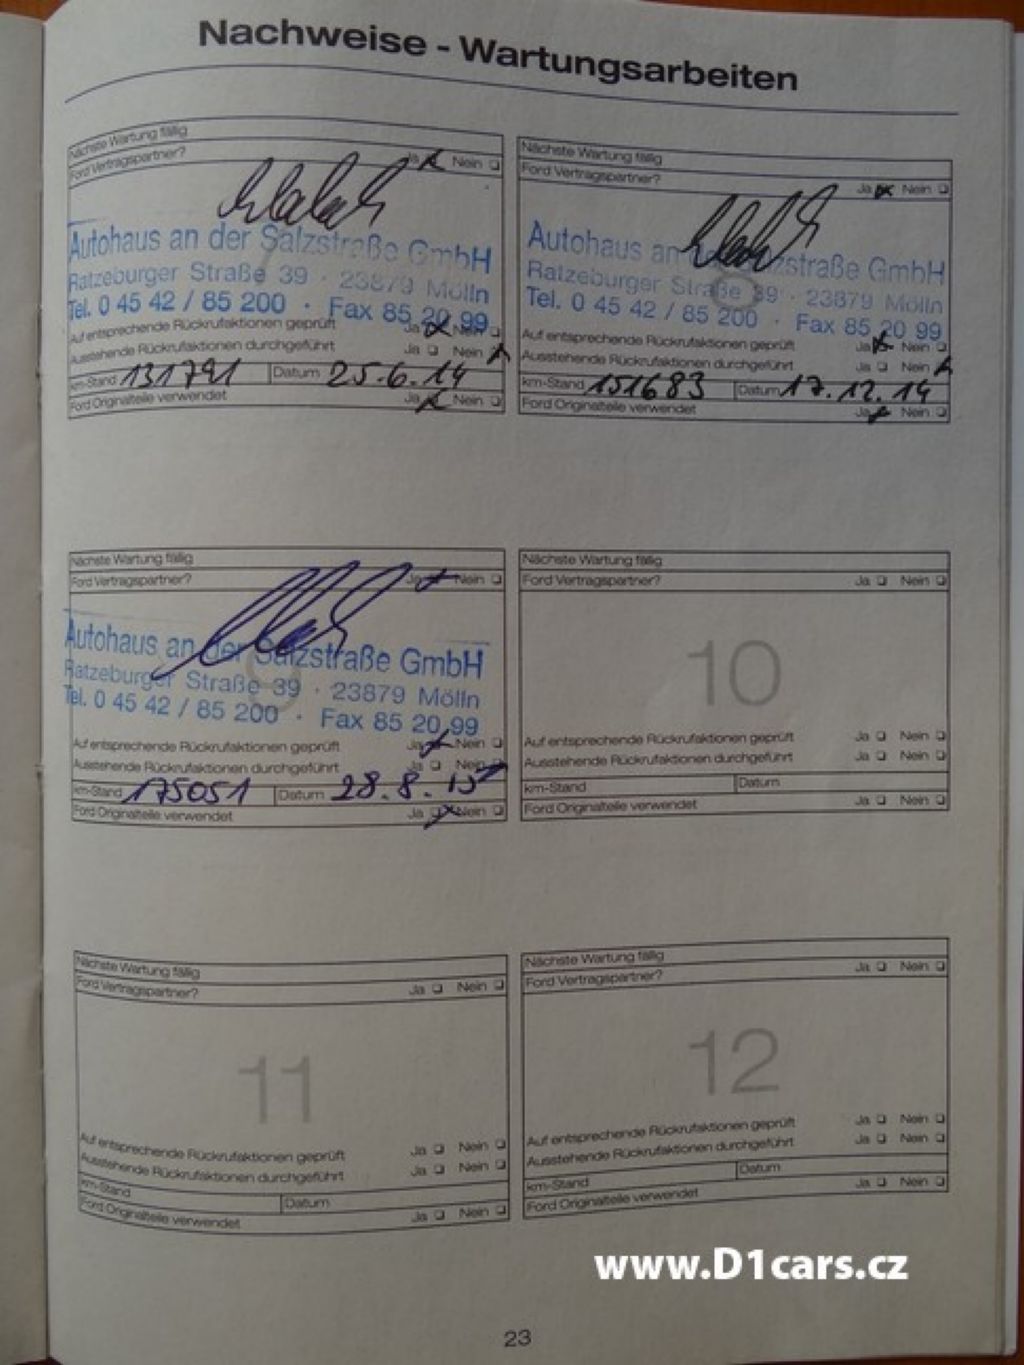 Nachweise - Wartungsarbeiten
Nächste Wartung fällig
Ford Vertragspartner? Ja Nein
Autohaus an der Salzstraße GmbH
Ratzeburger Straße 39 · 23879 Mölln
Tel. 0 45 42 / 85 200 · Fax 85 20 99
Auf entsprechende Rückrufaktionen geprüft Ja Nein
Ausstehende Rückrufaktionen durchgeführt Ja Nein
km-Stand 131791 Datum 25.6.14
Ford Originalteile verwendet Ja Nein
Nächste Wartung fällig
Ford Vertragspartner? Ja Nein
8
Autohaus an der Salzstraße GmbH
Ratzeburger Straße 39 · 23879 Mölln
Tel. 0 45 42 / 85 200 · Fax 85 20 99
Auf entsprechende Rückrufaktionen geprüft Ja Nein
Ausstehende Rückrufaktionen durchgeführt Ja Nein
km-Stand 151683 Datum 17.12.14
Ford Originalteile verwendet Ja Nein
Nächste Wartung fällig
Ford Vertragspartner? Ja Nein
9
Autohaus an der Salzstraße GmbH
Ratzeburger Straße 39 · 23879 Mölln
Tel. 0 45 42 / 85 200 · Fax 85 20 99
Auf entsprechende Rückrufaktionen geprüft Ja Nein
Ausstehende Rückrufaktionen durchgeführt Ja Nein
km-Stand 175051 Datum 28.8.15
Ford Originalteile verwendet Ja Nein
Nächste Wartung fällig
Ford Vertragspartner? Ja Nein
10
Auf entsprechende Rückrufaktionen geprüft Ja Nein
Ausstehende Rückrufaktionen durchgeführt Ja Nein
km-Stand Datum
Ford Originalteile verwendet Ja Nein
Nächste Wartung fällig
Ford Vertragspartner? Ja Nein
11
Auf entsprechende Rückrufaktionen geprüft Ja Nein
Ausstehende Rückrufaktionen durchgeführt Ja Nein
km-Stand Datum
Ford Originalteile verwendet Ja Nein
Nächste Wartung fällig
Ford Vertragspartner? Ja Nein
12
Auf entsprechende Rückrufaktionen geprüft Ja Nein
Ausstehende Rückrufaktionen durchgeführt Ja Nein
km-Stand Datum
Ford Originalteile verwendet Ja Nein
www.D1cars.cz
23